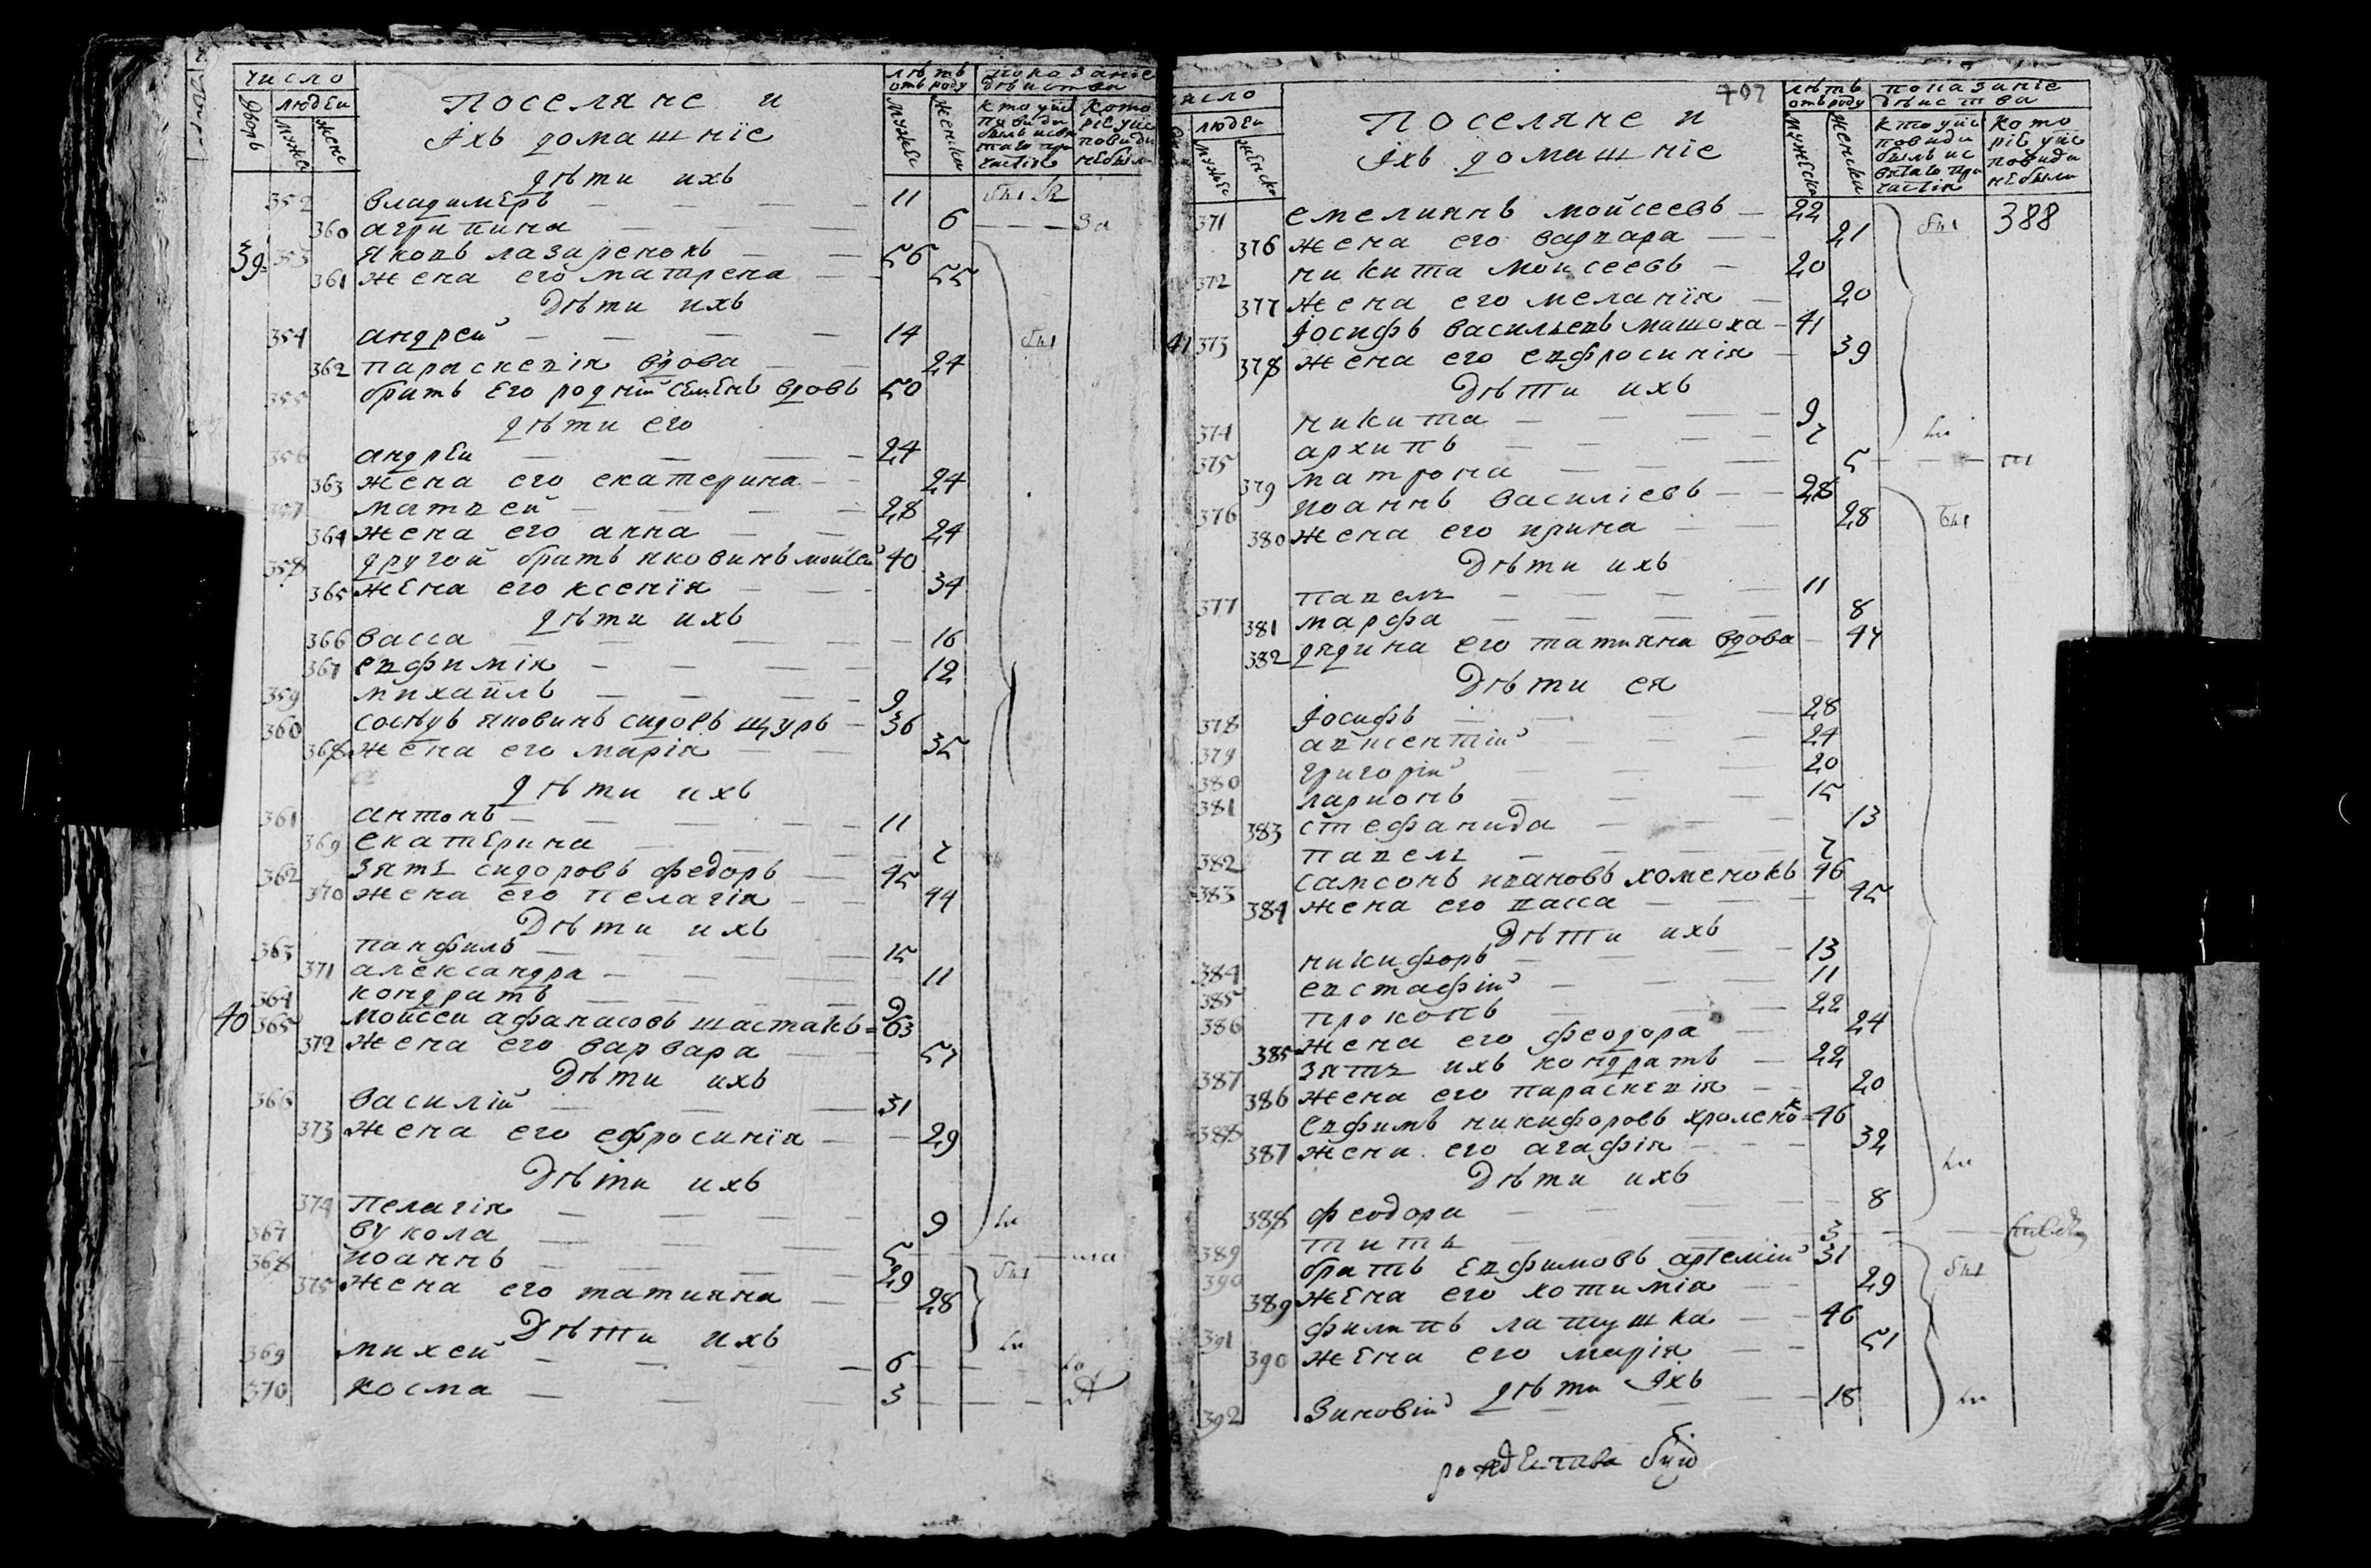 число
людей
дворъ
мужес
женс
Поселяне и
Іхъ домашніе
лѣтъ
отъ роду
мужес
женски
показаніе
дѣиства
кто уис
повиди
которіе уис
повиди
небыли
дѣти ихъ
352 владимеръ — 11
360 агрипина — 6
39 353 яковъ лазаренокъ — 56
361 жена его матрена — 55
Дѣти ихъ
354 андрей — 14
362 параскевія вдова — 24
355 братъ его родній семенъ вдовъ 50
дѣти его
356 андрей — 24
363 жена его екатерина — 24
357 матвей — 28
364 жена его анна — 24
358 другой братъ яковинъ мойсей 40
365 жена его ксенїя — 34
дѣти ихъ
366 васса — 16
367 евфимія — 12
359 михайлъ — 9
360 сосѣдъ яковинъ сидоръ щуръ — 36
368 жена его марія — 35
дѣти ихъ
361 антонъ — 11
369 екатерина — 7
362 зять сидоровъ федоръ — 45
370 жена его пелагія — 44
Дѣти ихъ
363 панфилъ — 15
371 александра — 11
364 кондратъ — 9
40 365 мойсей афанасовъ шастакъ = 63
372 жена его варвара — 57
Дѣти ихъ
366 василій — 31
373 жена его ефросинїя — 29
Дѣти ихъ
374 пелагія — 9
367 вукола — 5
368 йоаннъ — 29
375 жена его татияна — 28
Дѣти ихъ
369 михей — 6
370 косма — 3
число
людей
мужес
женски
707
Поселяне и
Іхъ домашніе
лѣтъ
отъ роду
мужеска
женски
показаніе
дѣиства
кто уис
повиди
былъ ис
которіе уис
повиди
небыли
371 емелиянъ мойсеевъ — 22
388
376 жена его варвара — 21
372 никита мойсеевъ — 20
377 жена его меланїя — 20
41 373 Іосифъ васильевъ машоха — 41
378 жена его евфросинія — 39
Дѣти ихъ
374 никита — 9
375 архипъ — 7
379 матрона — 5
376 йоаннъ василіевъ — 28
380 жена его ирина — 28
Дѣти ихъ
377 павелъ — 11
381 марфа — 8
382 дядина его татияна вдова — 47
Дѣти ея
378 Іосифъ — 28
379 авксентій — 24
380 григорій — 20
381 ларионъ — 15
383 стефанида — 13
382 павелъ — 7
383 самсонъ ивановъ хоменокъ 46
384 жена его васса — 45
Дѣти ихъ
384 никифоръ — 13
385 евстафій — 11
386 прокопъ — 22
385 жена его феодора — 24
387 зять ихъ кондратъ — 22
386 жена его параскевія — 20
388 евфимъ никифоровъ хроленок = 46
387 жена его агафія — 32
Дѣти ихъ
388 феодора — 8
389 титъ — 3
390 братъ евфимовъ артемій 31
389 жена его хотимія — 29
391 филипъ латушка — 46
390 жена его марія — 51
дѣти Іхъ
392 Зиновій — 18